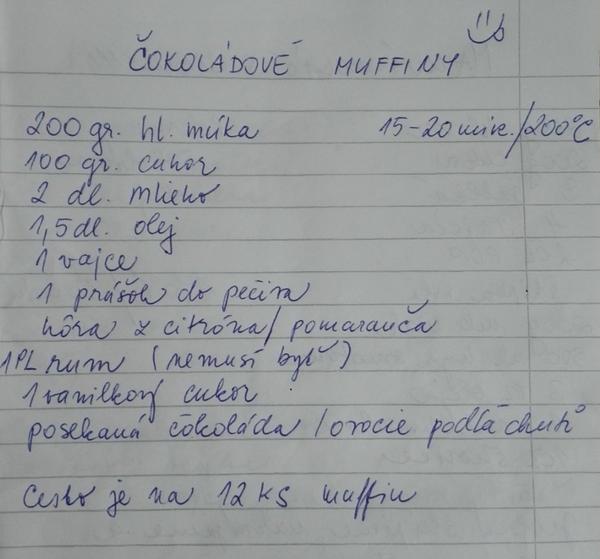 ČOKOLÁDOVÉ MUFFINY
200 gr. hl. múka 15-20 min./200°C
100 gr. cukor
2 dl. mlieko
1,5 dl. olej
1 vajce
1 prášok do pečiva
kôra z citróna/pomaranča
1PL rum (nemusí byť)
1 vanilkový cukor
posekaná čokoláda / ovocie podľa chuti
Cesto je na 12 ks muffin